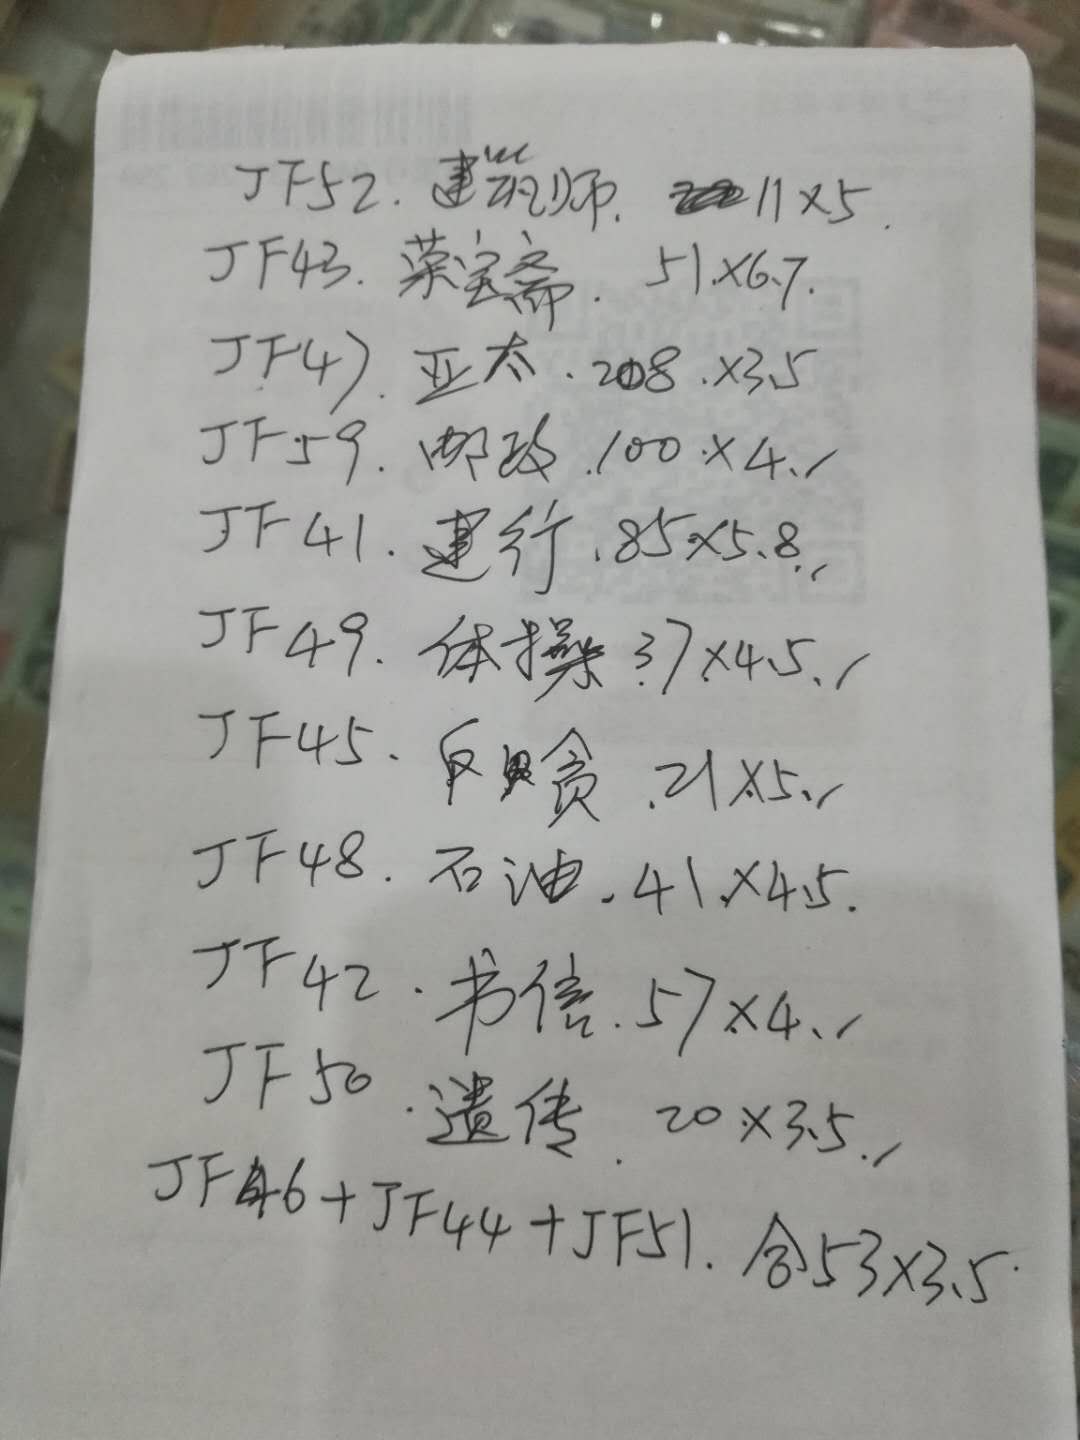 JF52. 建筑师. 11×5.
JF43. 荣宝斋. 51×6.7.
JF47. 亚太. 208.×3.5
JF59. 邮政.100×4.
JF41. 建行.85×5.8.
JF49. 体操 37×4.5.
JF45. 反贪.21×5.
JF48. 石油.41×4.5.
JF42. 书信.57×4.
JF50.遗传. 20×3.5.
JF46+JF44+JF51. 合53×3.5